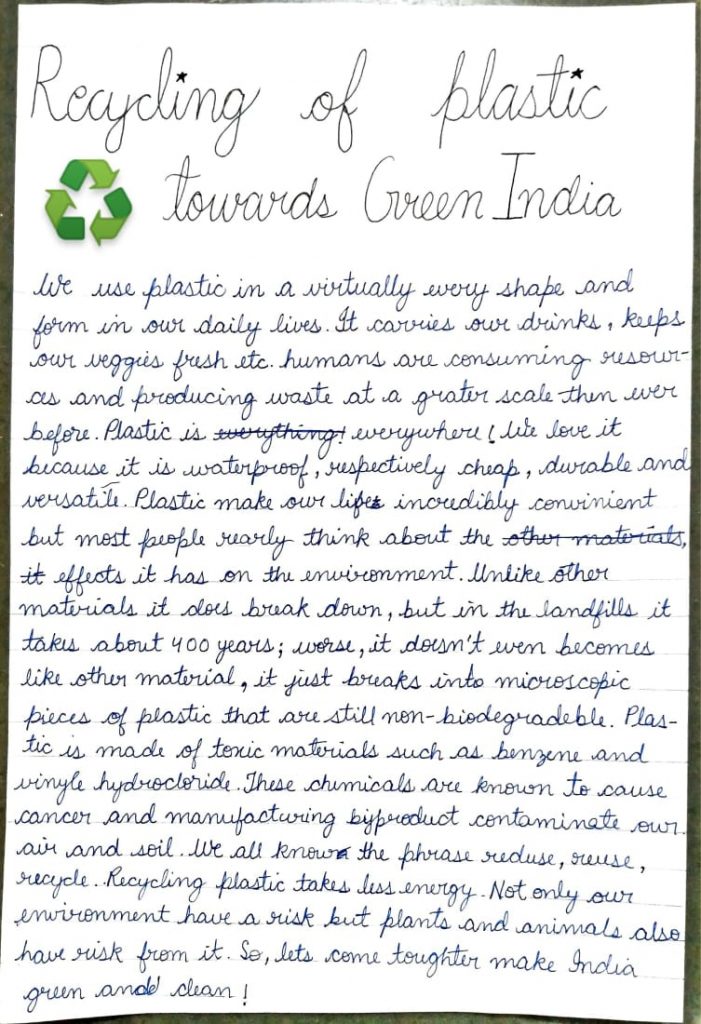 Recycling of plastic
towards Green India
We use plastic in a virtually every shape and
form in our daily lives. It carries our drinks, keeps
our veggies fresh etc. humans are consuming resour-
ces and producing waste at a grater scale then ever
before. Plastic is everything! everywhere! We love it
because it is waterproof, respectively cheap, durable and
versatile. Plastic make our life incredibly convinient
but most people rearly think about the other materials,
it effects it has on the environment. Unlike other
materials it does break down, but in the landfills it
takes about 400 years; worse, it doesn't even becomes
like other material, it just breaks into microscopic
pieces of plastic that are still non-biodegradeble. Plas-
tic is made of toxic materials such as benzene and
vinyle hydrocloride. These chemicals are known to cause
cancer and manufacturing byproduct contaminate our
air and soil. We all know the phrase reduse, reuse,
recycle. Recycling plastic takes less energy. Not only our
environment have a risk but plants and animals also
have risk from it. So, lets come toughter make India
green and clean!